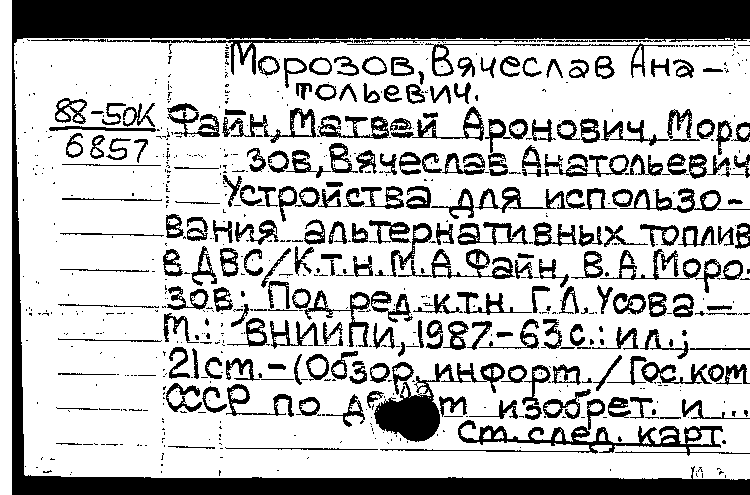 Морозов, Вячеслав Ана–
тольевич.
88-50К
6857
Файн, Матвей Аронович, Моро
зов, Вячеслав Анатольевич
Устройства для использо-
вания альтернативных топлив
в ДВС/К.т.н. М.А. Файн, В.А. Моро.
зов; Под ред. к.т.н. Г.Л. Усова.–
М.: ВНИИПИ, 1987.-63 с.: ил.;
21 см.-(Обзор. информ. / Гос. ком
СССР по делам изобрет. и ...
См. след. карт.